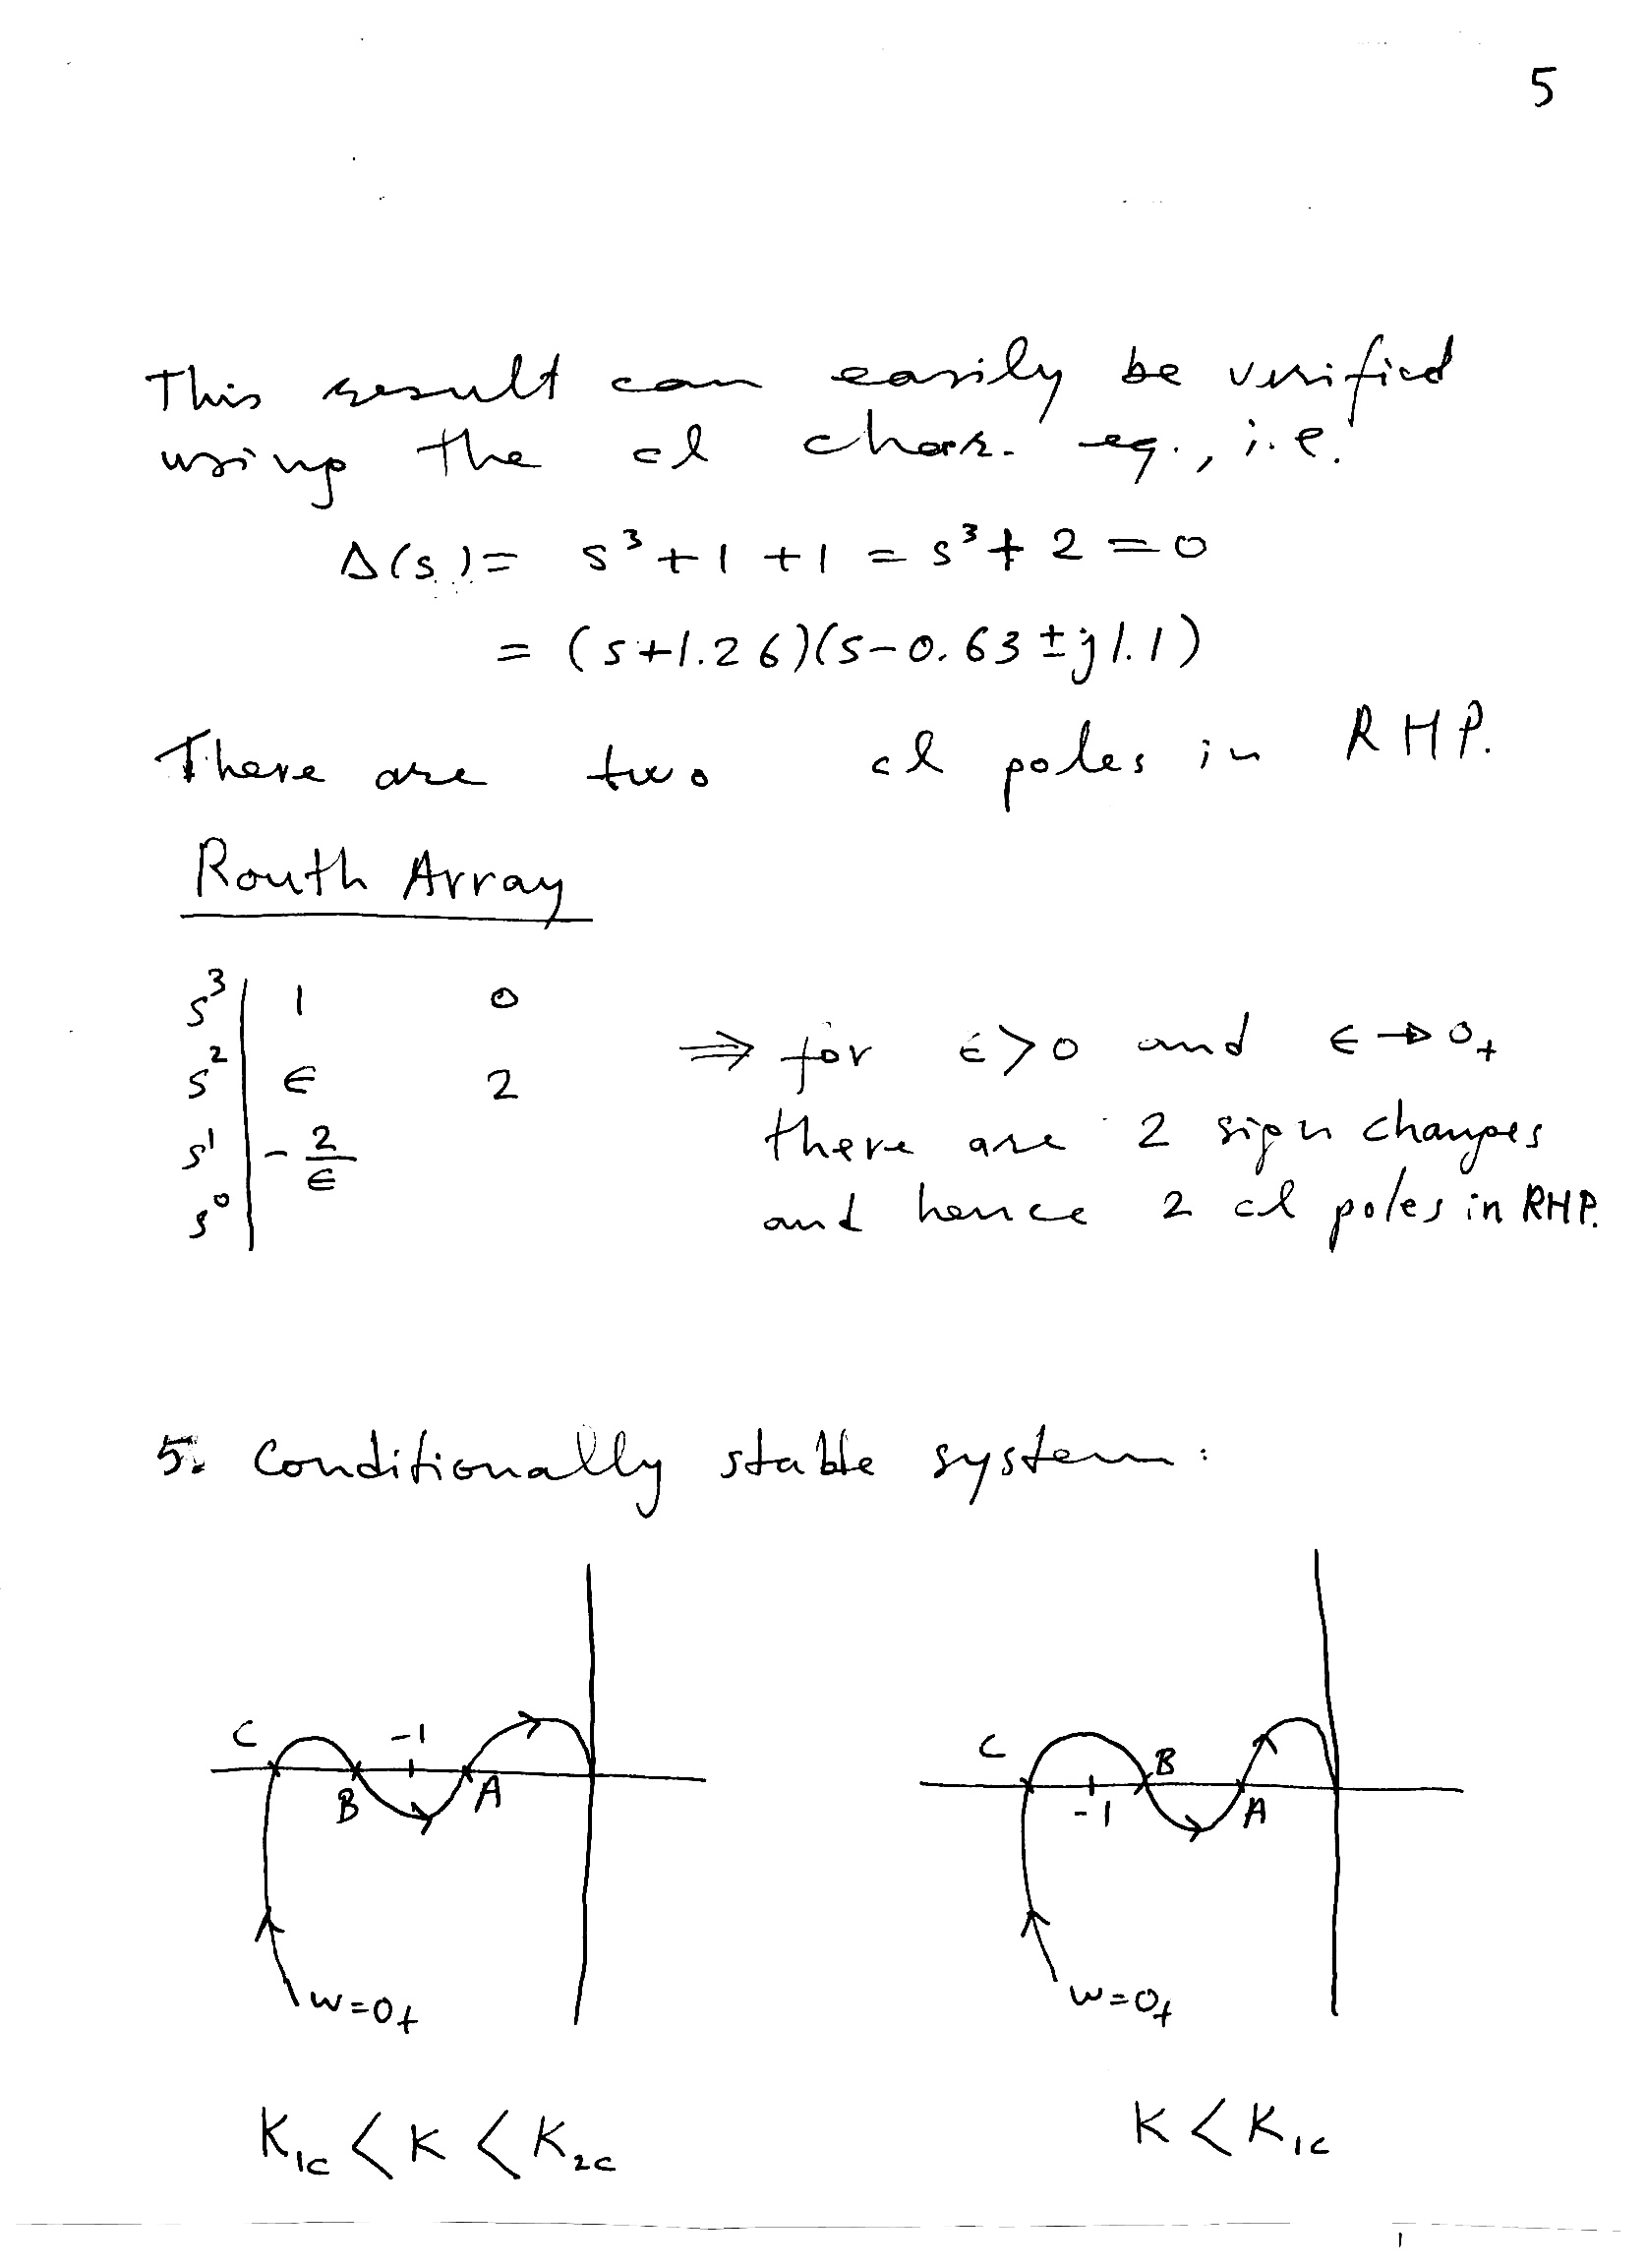 5
This result can easily be verified
using the cl char. eq., i.e.
Δ(s) = s³ + 1 + 1 = s³ + 2 = 0
= (s+1.26)(s-0.63 ± j1.1)
There are two cl poles in RHP.
Routh Array
s³ | 1 0
s² | ϵ 2
s¹ | - 2/ϵ
s⁰ |
⇒ for ϵ>0 and ϵ → 0₊
there are 2 sign changes
and hence 2 cl poles in RHP.
5. Conditionally stable system:
C -1
B A
w=0₊
K₁c < K < K₂c
C B
-1 A
w=0₊
K < K₁c